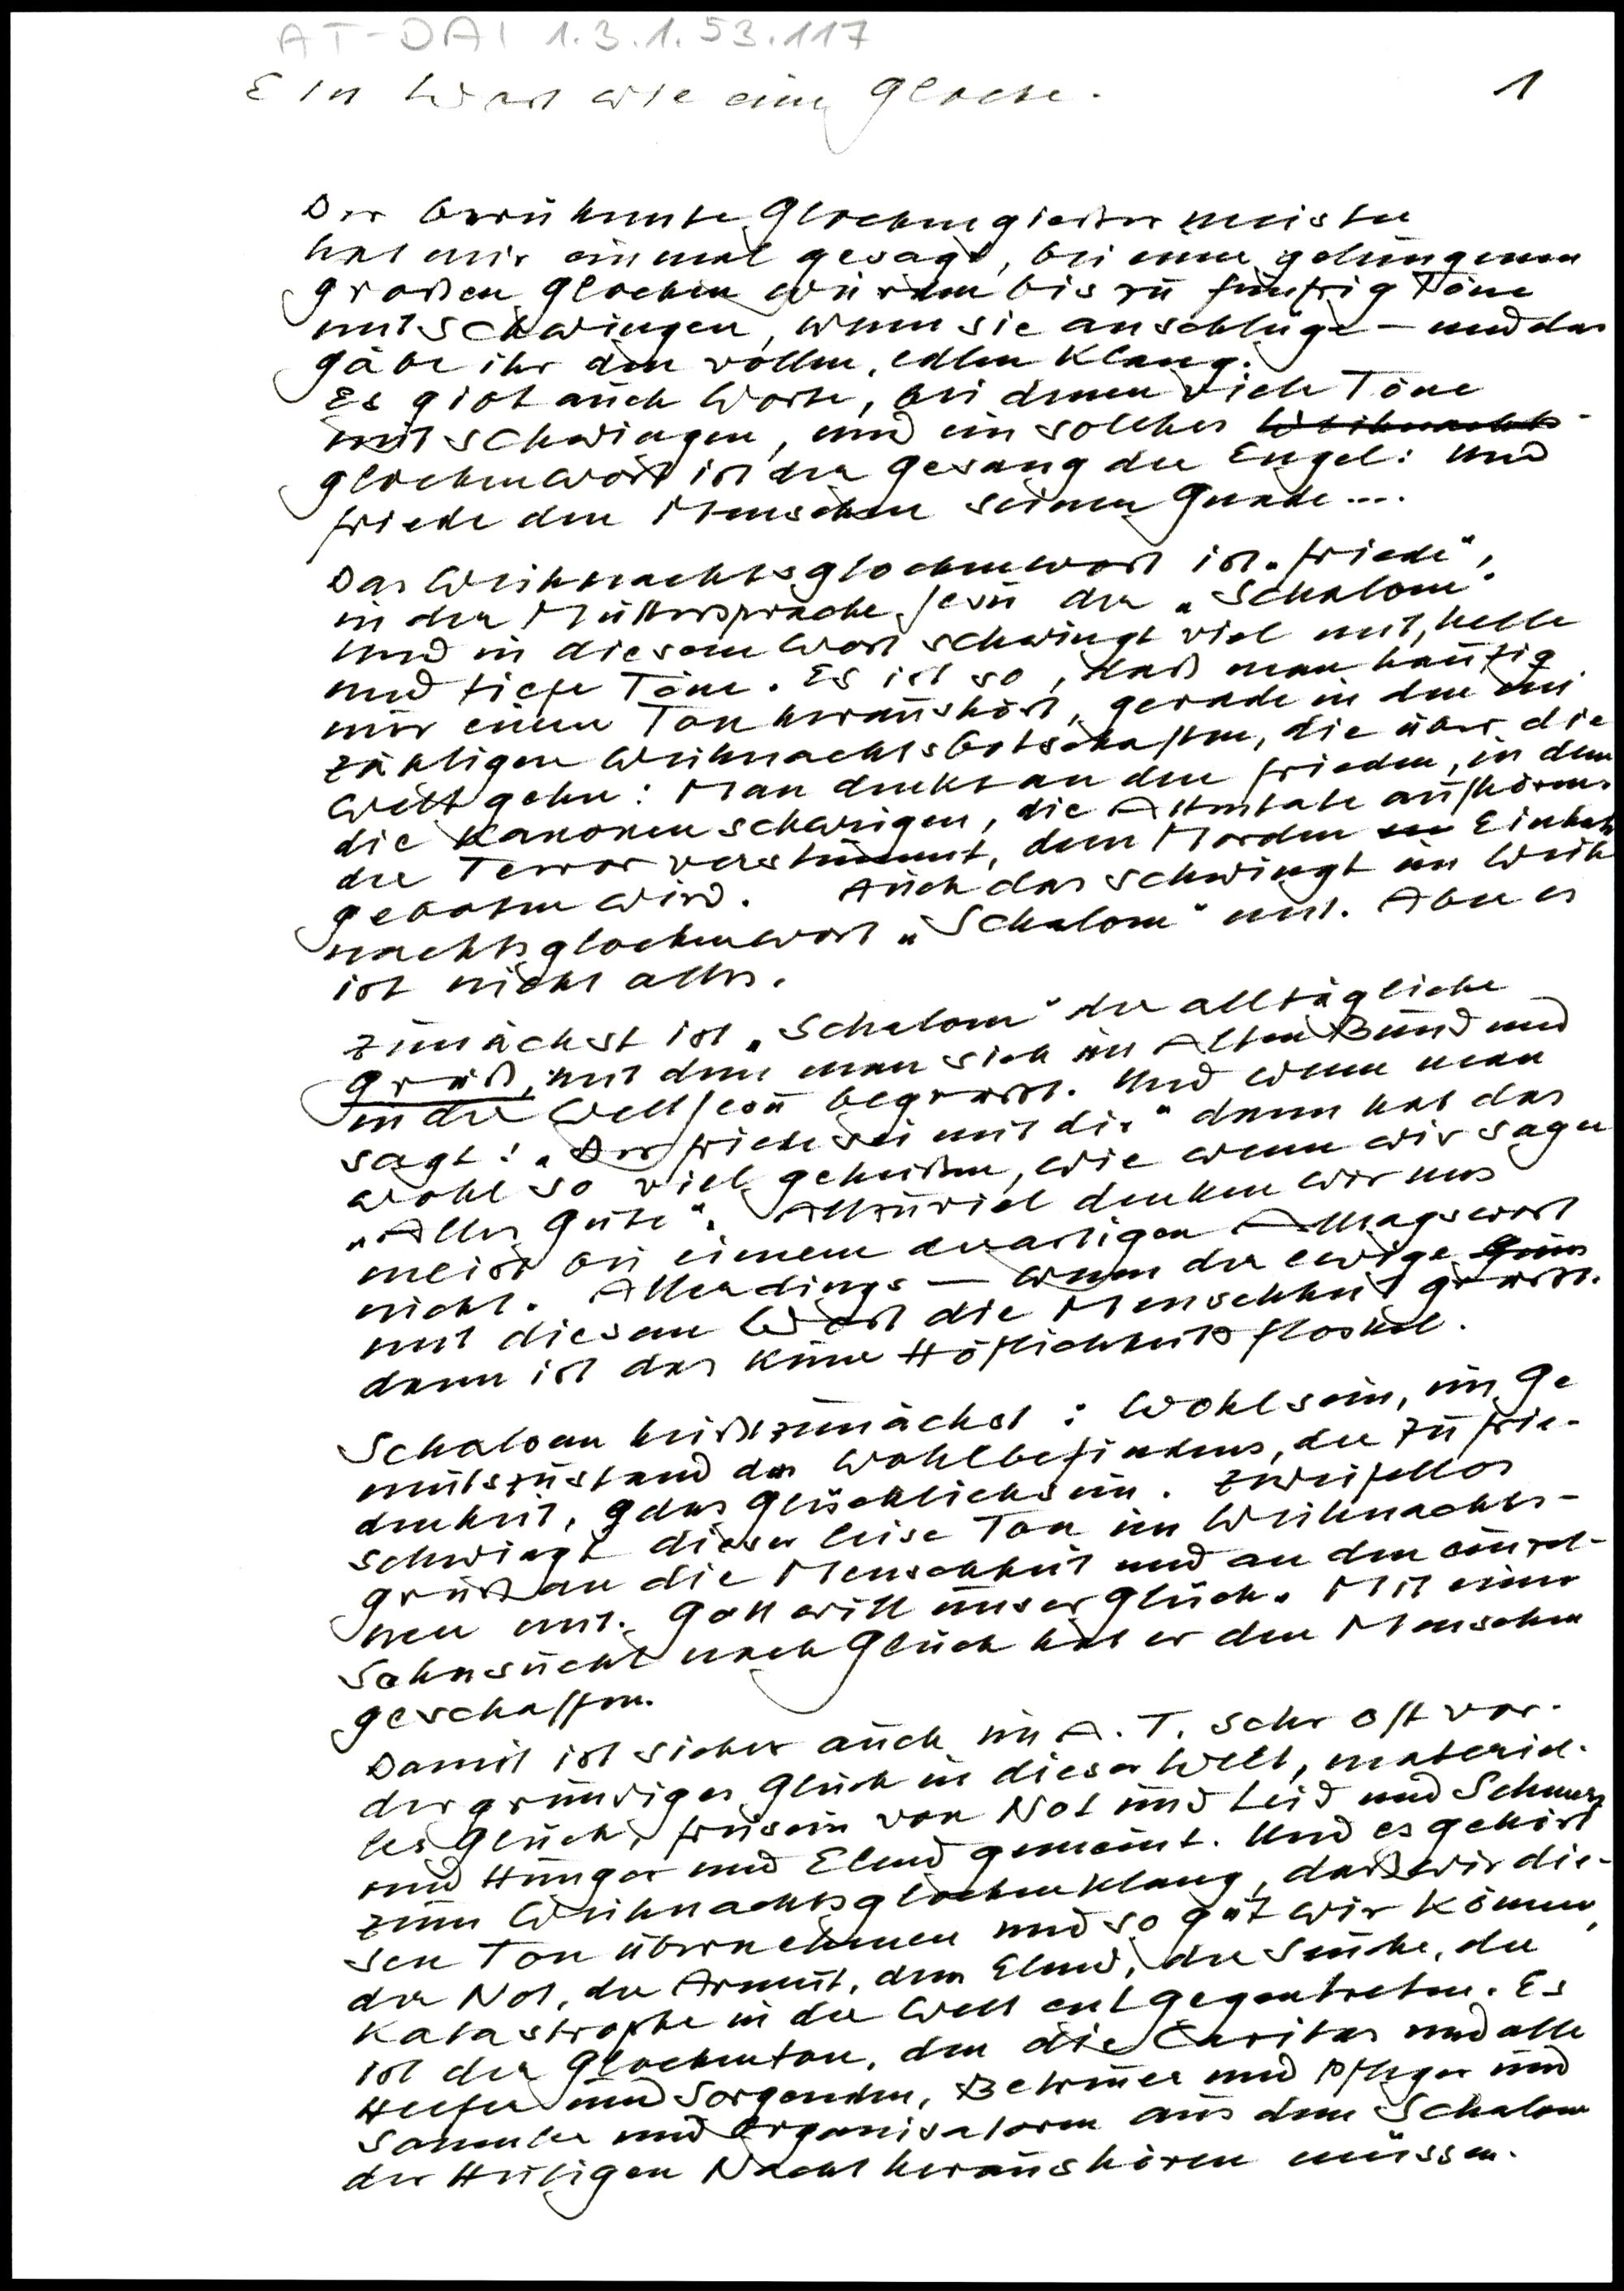 AT-DAI 1.3.1.53.117
Ein Wort wie eine Glocke.
1
Der berühmte Glockengießermeister
hat mir einmal gesagt, bei einer gelungenen
großen Glocken würden bis zu fünfzig Töne
mitschwingen, wenn sie anschlüge – und das
gäbe ihr den vollen, edlen Klang.
Es gibt auch Worte, bei denen viele Töne
mitschwingen, und ein solches Weihnachts-
glockenwort ist der Gesang der Engel: Und
Friede den Menschen seiner Gnade ....
Das Weihnachtsglockenwort ist „Friede",
in der Muttersprache Jesu der „Schalom".
Und in diesem Wort schwingt viel mit, helle
und tiefe Töne. Es ist so, daß man häufig
nur einen Ton heraushört, gerade in den un
zähligen Weihnachtsbotschaften, die über die
Welt gehen: Man denkt an den Frieden, in dem
die Kanonen schweigen, die Attentate aufhören,
der Terror verstummt, dem Morden Einhalt
geboten wird. Auch das schwingt im Weih
nachtsglockenwort „Schalom" mit. Aber es
ist nicht alles.
Zunächst ist „Schalom" der alltägliche
Gruß, mit dem man sich im Alten Bund und
in der Welt Jesu begrüsst. Und wenn man
sagt: „Der Friede sei mit dir" dann hat das
wohl so viel geheißen, wie wenn wir sagen
„Alles Gute". Allzuviel denken wir uns
meist bei einem derartigen Alltagswort
nicht. Allerdings – wenn der ewige
mit diesem Wort die Menschheit grüsst.
dann ist das keine Höflichkeitsfloskel.
Schalom heißt zunächst: Wohlsein, im Ge
mütszustand des Wohlbefindens, der Zufrie-
denheit, des Glücklichseins. Zweifellos
schwingt dieser leise Ton im Weihnachts-
gruß an die Menschheit und an den einzel-
nen mit. Gott will unser Glück. Mit einer
Sehnsucht nach Glück hat er den Menschen
geschaffen.
Damit ist sicher auch im A. T. sehr oft vor-
dergründiges Glück in dieser Welt, materiel-
les Glück, freisein von Not und Leid und Schmerz
und Hunger und Elend gemeint. Und es gehört
zum Weihnachtsglockenklang, daß wir die-
sen Ton übernehmen und so gut wir können,
der Not, der Armut, dem Elend, der Seuche, der
Katastrophe in der Welt entgegentreten. Es
ist der Glockenton, den die Caritas und alle
Helfer und Sorgenden, Betreuer und Pfleger und
Sammler und Organisatoren aus dem Schalom
der Heiligen Nacht heraushören müssen.